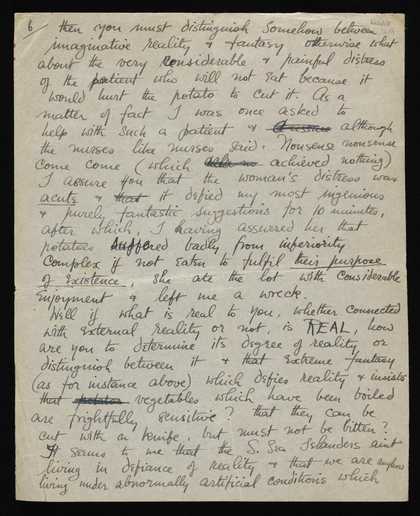 6 then you must distinguish somehow between
imaginative reality & fantasy otherwise what
about the very considerable & painful distress
of the patient who will not eat because it
would hurt the potato to cut it. As a
matter of fact I was once asked to
help with such a patient & although
the nurses like nurses said. Nonsense nonsense
come come (which achieved nothing)
I assure you that the woman's distress was
acute & that it defied my most ingenious
& purely fantastic suggestions for 10 minutes,
after which, I having assured her that
potatoes suffered badly from inferiority
complex if not eaten to fulfil their purpose
of existence, she ate the lot with considerable
enjoyment & left me a wreck.
Well if what is real to you, whether connected
with external reality or not, is REAL, how
are you to determine its degree of reality or
distinguish between it & that extreme fantasy
(as for instance above) which defies reality & insists
that potatoes vegetables which have been boiled
are frightfully sensitive? that they can be
cut with a knife, but must not be bitten?
It seems to me that the S. Sea Islanders aint
living in defiance of reality & that we are
living under abnormally artificial conditions which